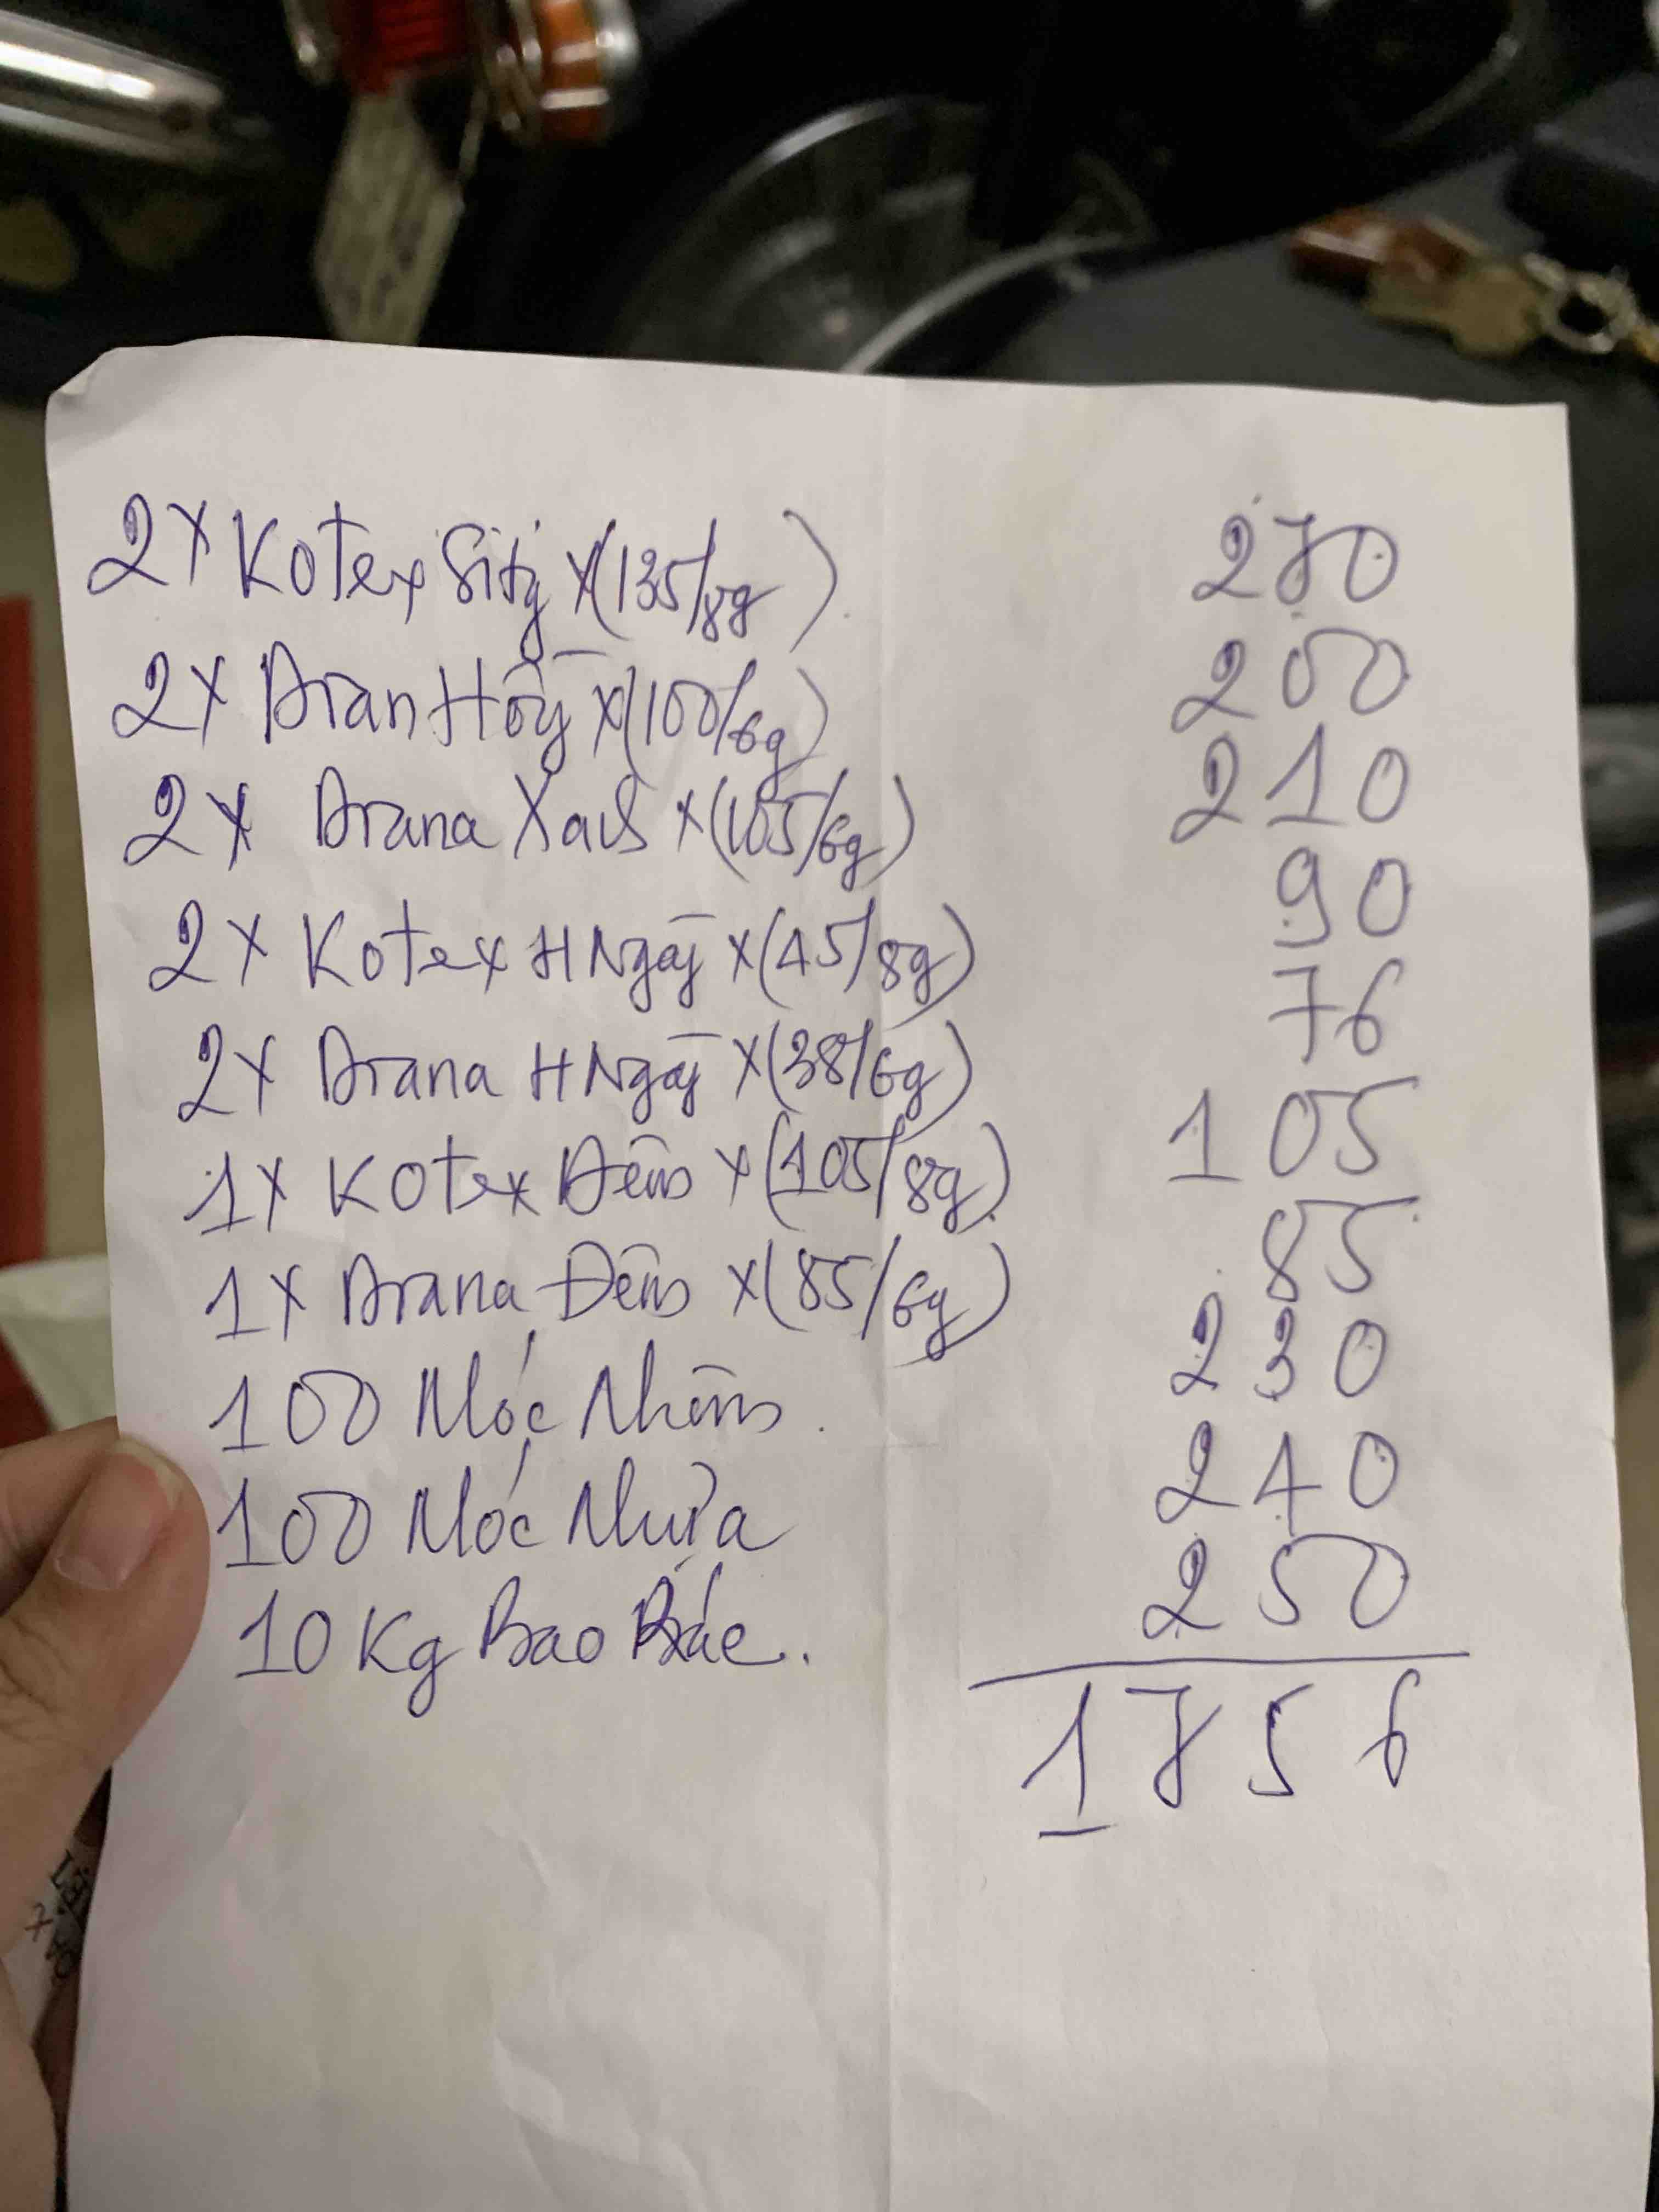 2x Kotex Sitĳ x(135/8g) 270
2x Dian Hồg x(100/6g) 200
2x Diana Xanh x(105/6g) 210
2x Kotex H Ngày x(45/8g) 90
2x Diana H Ngày x(38/6g) 76
1x Kotex Đêm x(105/8g) 105
1x Diana Đêm x(85/6g) 85
100 Móc Nhôm 230
100 Móc Nhựa 240
10 Kg Bao Rác. 250
1756